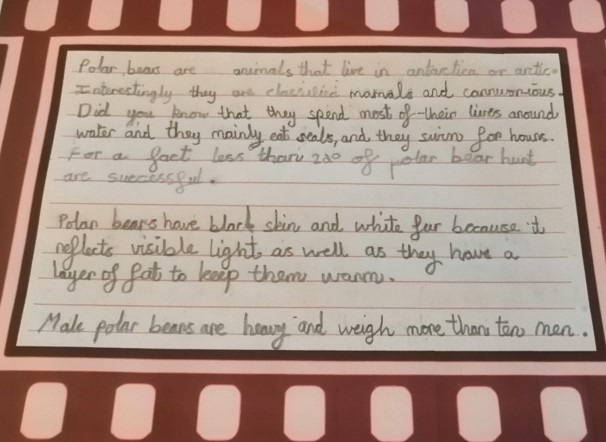 Polar bears are animals that live in antarctica or arctic.
Interestingly they are classified mamals and
Did you know that they spend most of their lives around
water and they mainly eat seals, and they swim for hours.
For a fact less than of polar bear hunt
are successful.
Polar bears have black skin and white fur because it
reflects visible light, as well as they have a
layer of fat to keep them warm.
Male polar bears are heavy and weigh more than ten men.